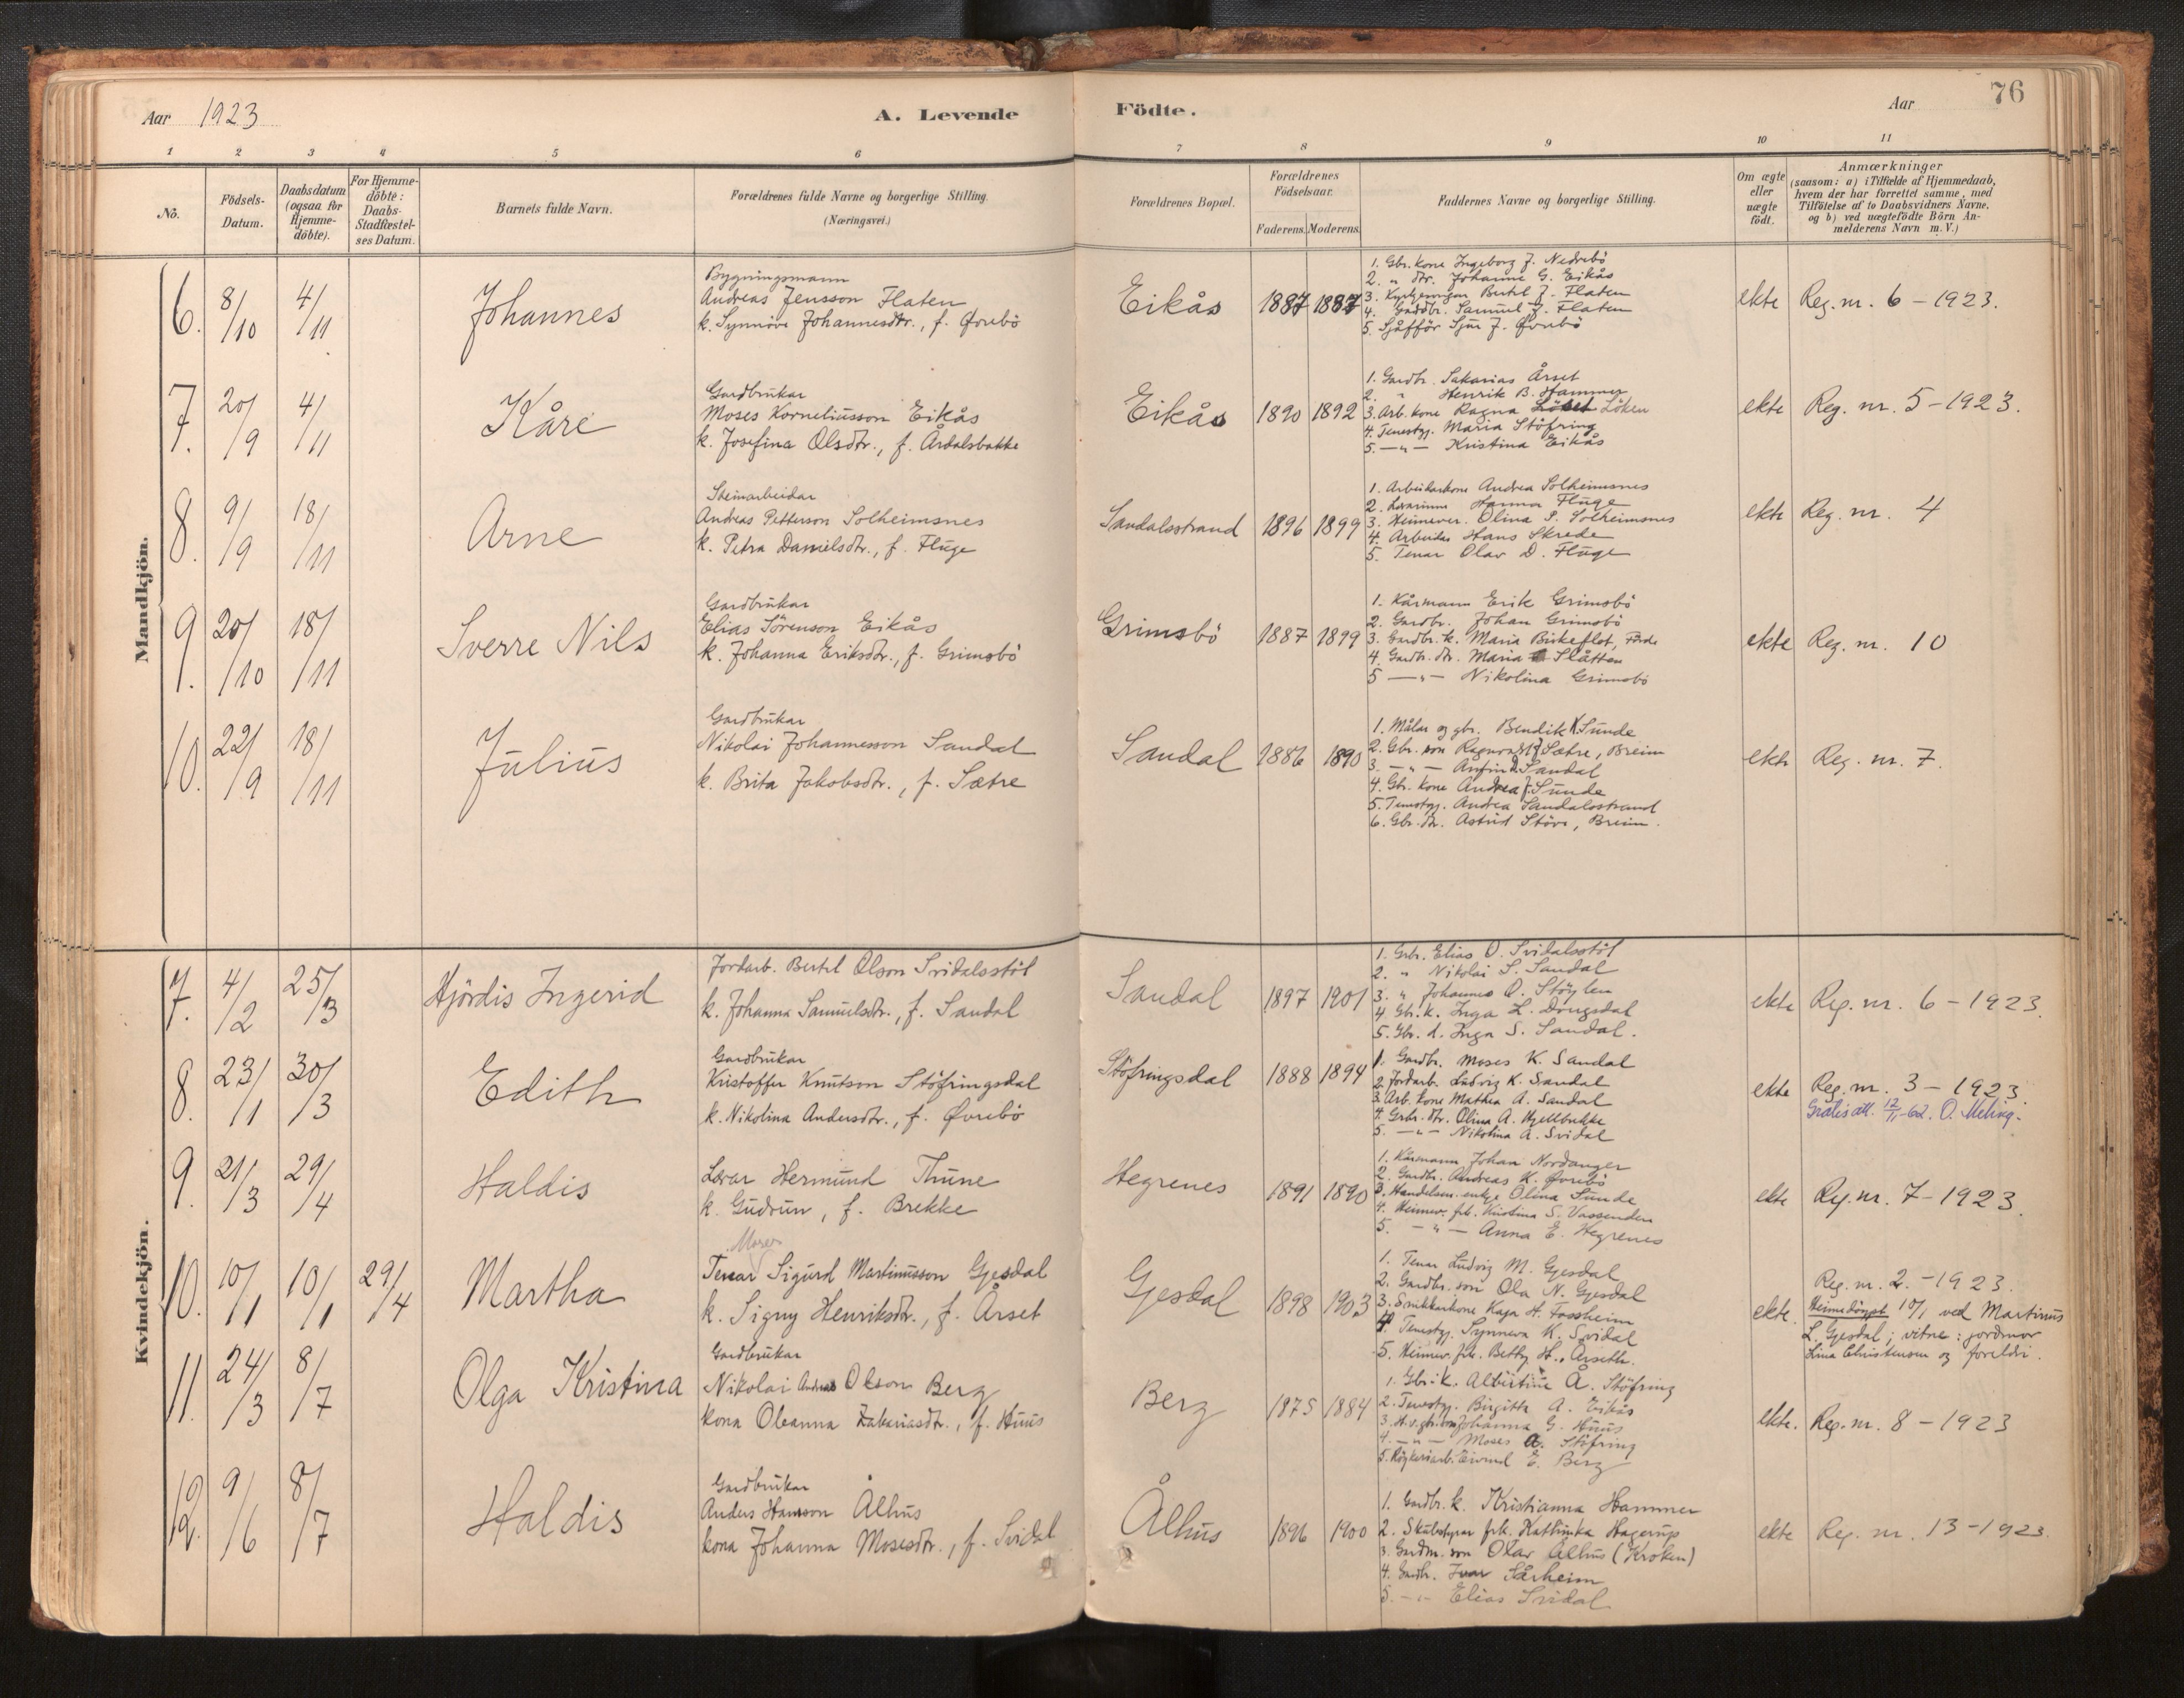 76
Aar 1923
A. Levende Födte.
Aar
1 2 3 4 5 6 7 8 9 10 11
No.
Födsels-Datum.
Daabsdatum (ogsaa for Hjemme-döbte).
For Hjemme-döbte: Daabs-Stadfæstel-ses Datum.
Barnets fulde Navn.
Forældrenes fulde Navne og borgerlige Stilling. (Næringsvei.)
Forældrenes Bopæl.
Forældrenes Födselsaar.
Faderens. Moderens.
Faddernes Navne og borgerlige Stilling.
Om ægte eller uægte födt.
Anmærkninger
(saasom: a) i Tilfælde af Hjemmedaab,
hvem der har forrettet samme, med
Tilföielse af to Daabsvidners Navne,
og b) ved uægtefödte Börn An-
melderens Navn m. V.)
Mandkjön.
6. 8/10 4/11 Johannes
Bygningsmann
Andreas Jensson Flaten
k. Synnöve Johannesdtr., f. Övrebö
Eikås 1887 1887
1. Gbr. kone Ingeborg J. Nedrebö
2. " dtr. Johanne G. Eikås
3. Bertel J. Flaten
4. Gardbr. Samuel J. Flaten
5. Sjåfför Sjur J. Övrebö
ekte Reg. nr. 6 - 1923.
7. 20/9 4/11 Kåre
Gardbrukar
Moses Korneliusson Eikås
k. Josefina Olsdtr., f. Årdalsbakke
Eikås 1890 1892
1. Gardbr. Sakarias Årset
2. " Henrik B. Hammer
3. Arb. kone Ragna Löken
4. Tenestgj. Maria Stöfring
5. —"— Kristina Eikås
ekte Reg. nr. 5 - 1923.
8. 9/9 18/11 Arne
Steinarbeidar
Andreas Petterson Solheimsnes
k. Petra Danielsdtr., f. Fluge
Sandalsstrand 1896 1899
1. Arbeidarkone Andrea Solheimsnes
2. Lærarinne Hanna Fluge
3. Heimever. Olina P. Solheimsnes
4. Arbeidar Hans Skrede
5. Tenar Olav D. Fluge
ekte Reg. nr. 4
9. 20/10 18/11 Sverre Nils
Gardbrukar
Elias Sörenson Eikås
k. Johanna Eriksdtr., f. Grimsbö
Grimsbö 1887 1899
1. Kårmann Erik Grimsbö
2. Gardbr. Johan Grimsbö
3. Gardbr. k. Maria Birkeflot, Förde
4. Gardb. dtr. Maria Slåtten
5. —"— Nikolina Grimsbö
ekte Reg. nr. 10
10. 22/9 18/11 Julius
Gardbrukar
Nikolai Johannesson Sandal
k. Brita Jakobsdtr., f. Sætre
Sandal 1886 1890
1. Målar og gbr. Bendik K. Sunde
2. Gbr. son Ragnvald J. Sætre, Breim
3. —"— Anfin Sandal
4. Gbr. kone Andrea J. Sunde
5. Tenestgj. Andrea Sandalsstrand
6. Gbr. dtr. Astrid Störe, Breim.
ekte Reg. nr. 7.
Kvindekjön.
7. 4/2 25/3 Hjördis Ingerid
Jordarb. Bertel Olson Svidalsstöl
k. Johanna Samuelsdtr., f. Sandal
Sandal 1897 1901
1. Grbr. Elias O. Svidalsstöl
2. " Nikolai S. Sandal
3. " Johannes O. Stöylen
4. Gbr. k. Inga L. Dvergsdal
5. Gbr. d. Inga S. Sandal.
ekte Reg. nr. 6 - 1923.
8. 23/1 30/3 Edith
Gardbrukar
Kristoffer Knutson Stöfringsdal
k. Nikolina Andersdtr., f. Övrebö
Stöfringsdal 1888 1894
1. Gardbr. Moses K. Sandal
2. Jordarb. Ludvig K. Sandal
3. Arb. kone Mathea A. Sandal
4. Grbr. dtr. Olina A. Hjellbakke
5. —"— Nikolina A. Svidal
ekte Reg. nr. 3 - 1923.
Gratis att. 12/11-62. O. Meling.
9. 21/3 29/4 Haldis
Lærar Hermund Thune
k. Gudrun, f. Brekke
Hegrenes 1891 1890
1. Kårmann Johan Nordanger
2. Gardbr. Andreas K. Övrebö
3. Handelsm. enkje Olina Sunde
4. Heimev. frk. Kristina S. Vassenden
5. —"— Anna E. Hegrenes
ekte Reg. nr. 7 - 1923.
10. 10/1 10/1 29/4 Martha
Tenar Sigurd Martinusson Gjesdal
k. Signy Henriksdtr., f. Årset
Gjesdal 1898 1903
1. Tenar Ludvig M. Gjesdal
2. Gardbr. son Ola N. Gjesdal
3. Snikkarkone Kaja H. Fossheim
4. Tenestgj. Synneva K. Svidal
5. Heimev. frk. Betty H. Årseth.
ekte. Reg. nr. 2. - 1923.
Heimedöypt 10/1 ved Martinus
L. Gjesdal; vitne: jordmor
Lina Christensen og foreldri.
11. 24/3 8/7 Olga Kristina
Gardbrukar
Nikolai Andreas Olson Berg
kona Oleanna Zakariasdtr., f. Huus
Berg 1875 1884
1. Gbr. k. Albertine A. Stöfring
2. Tenestgj. Birgitte A. Eikås
3. Johanna G. Huus
4. —"— Moses A. Stöfring
5. Eivind E. Berg
ekte. Reg. nr. 8 - 1923
12. 9/6 8/7 Haldis
Gardbrukar
Anders Hansson Ålhus
kona Johanna Mosesdtr., f. Svidal
Ålhus 1896 1900
1. Gardbr. k. Kristianna Hammer
2. Skulestyrar frk. Kathinka Hagerup
3. Gardm. son Olav Ålhus (Kroken)
4. Gardbr. Ivar Sårheim
5. —"— Elias Svidal
ekte Reg. nr. 13 - 1923.